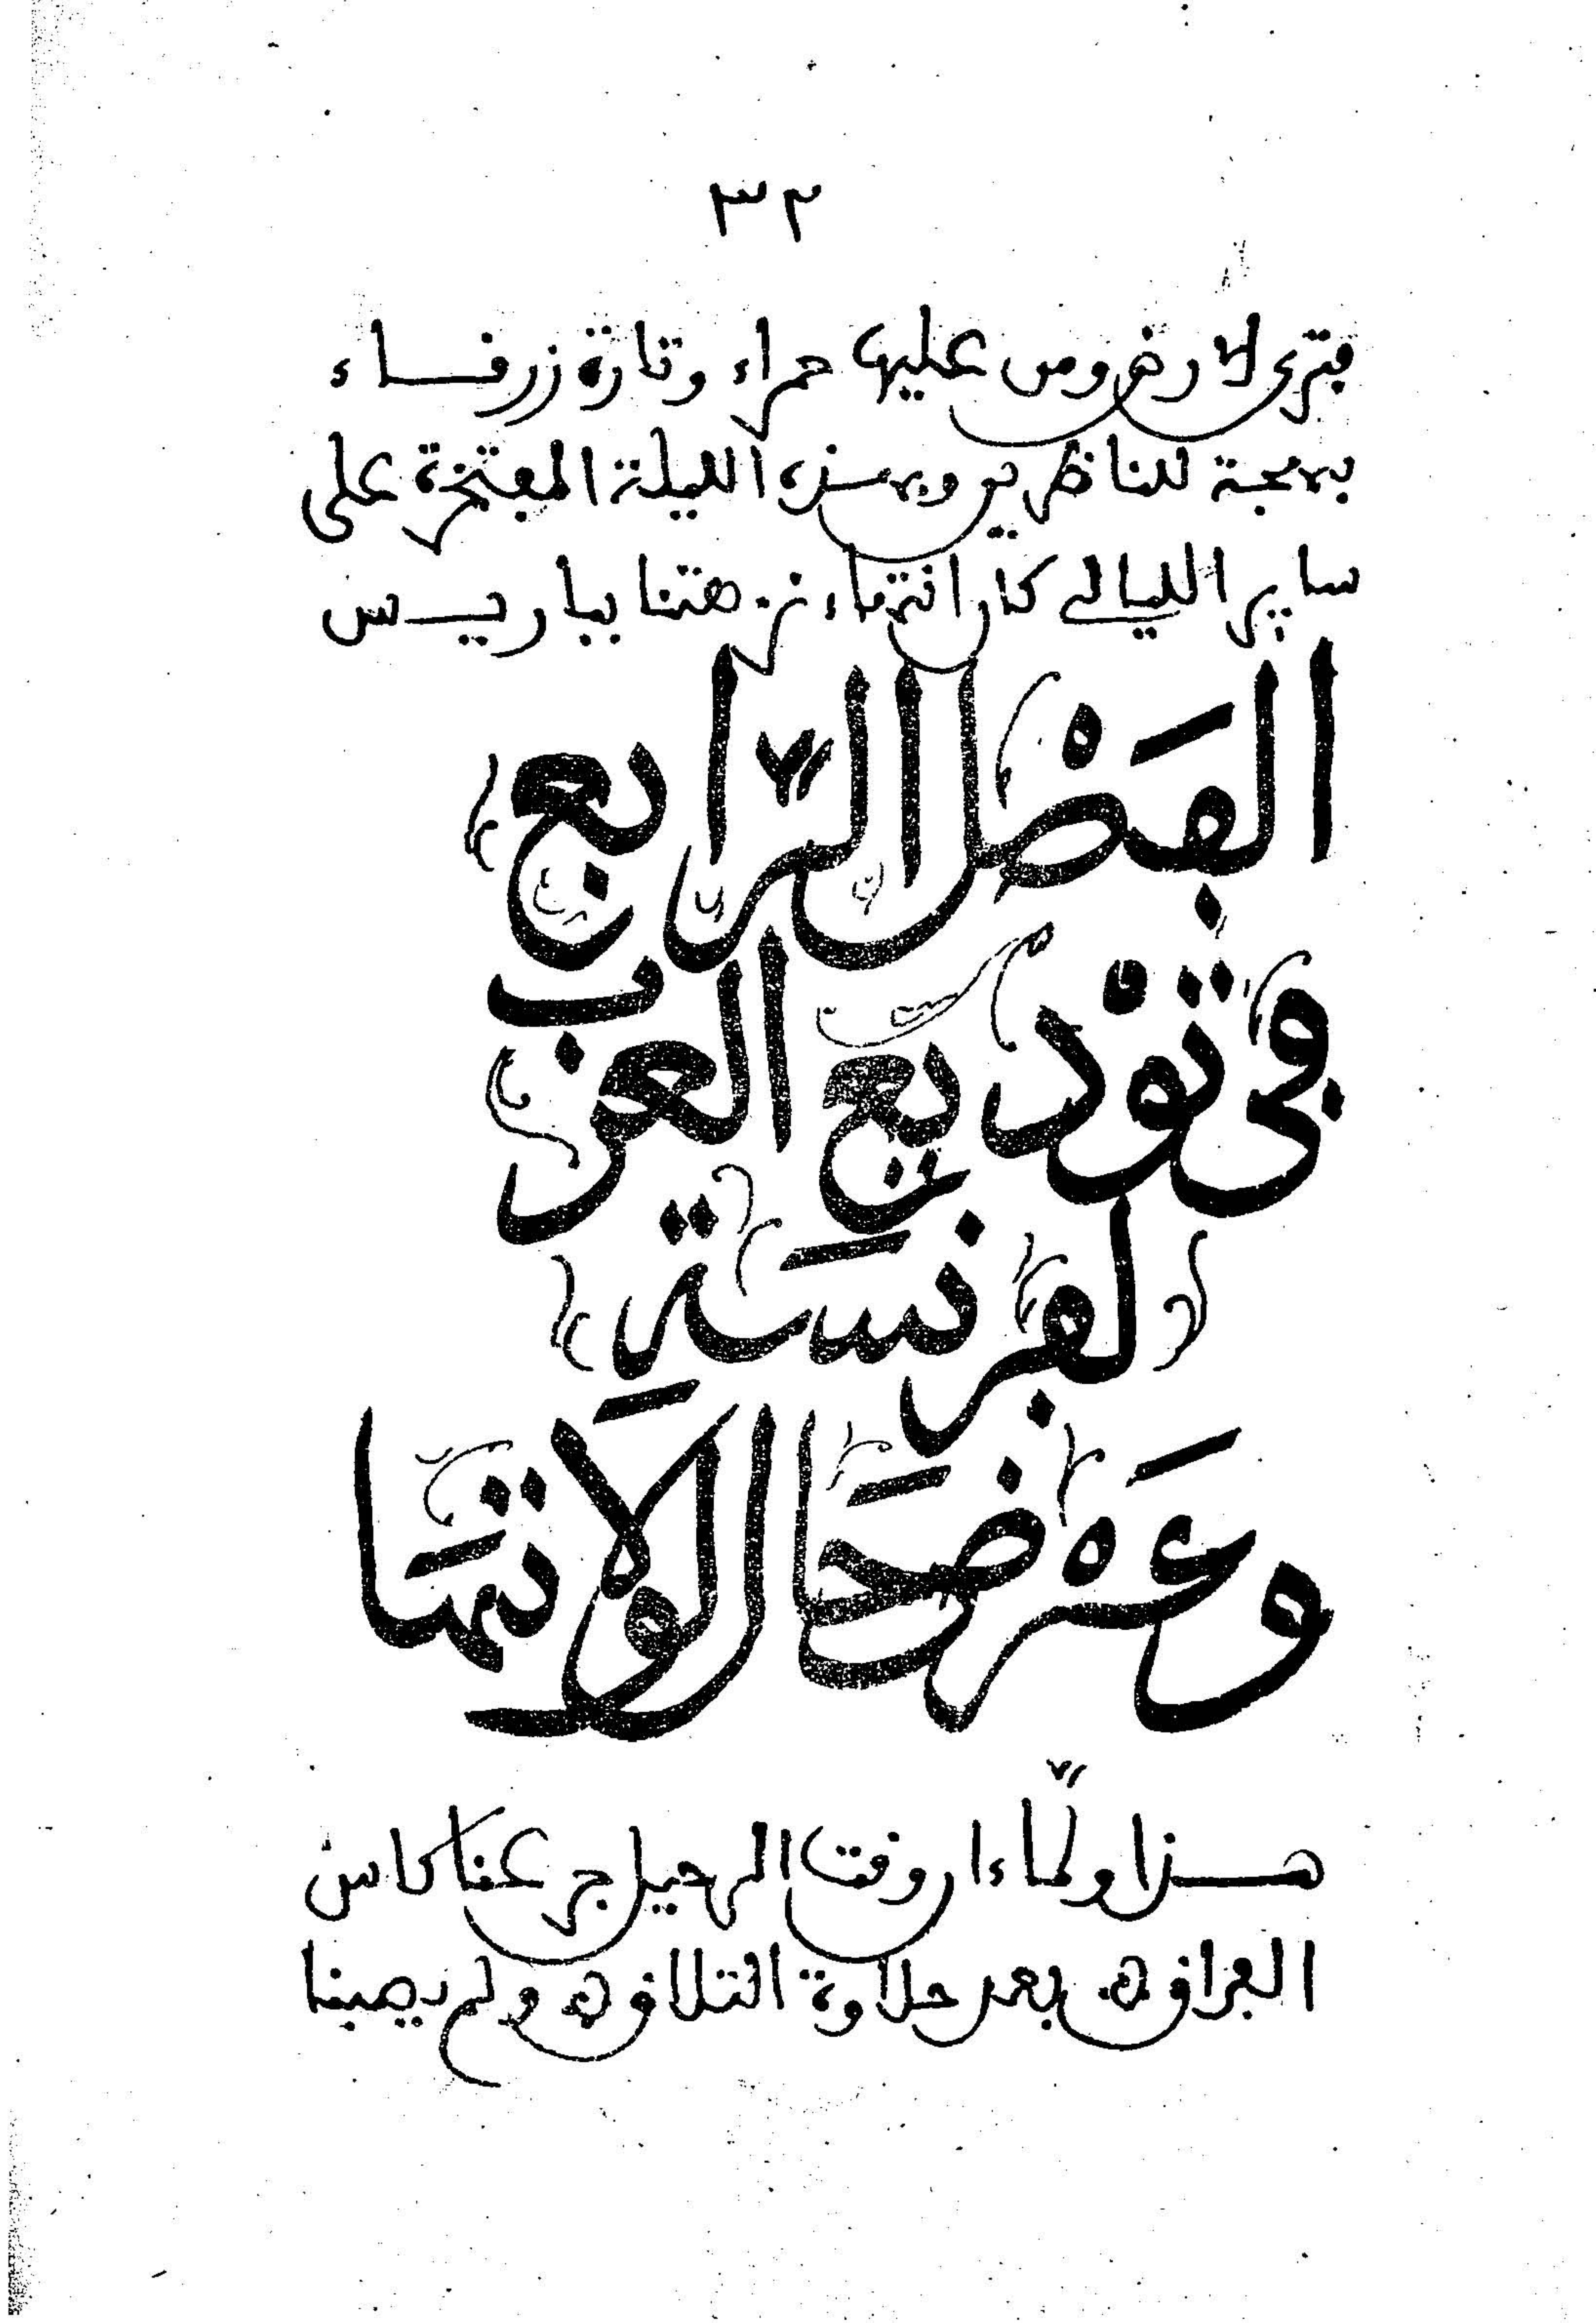 ٣٢
فترى الارض ومن عليها حمراء وتارة زرقاء
بهجة للناظرين وبهذه الليلة المفتخرة على
ساير الليالي كان انتهاء نزهتنا بباريس
الفَصْل الرّابع
في تَوْديع العز
بِ لفرنسَة
وعَرْض حَال الانتهَا
هذا ولمّا ءان وقت الرحيل جرعنا كاس
الفراق بعد حلاوة التلاق ولم يصبنا